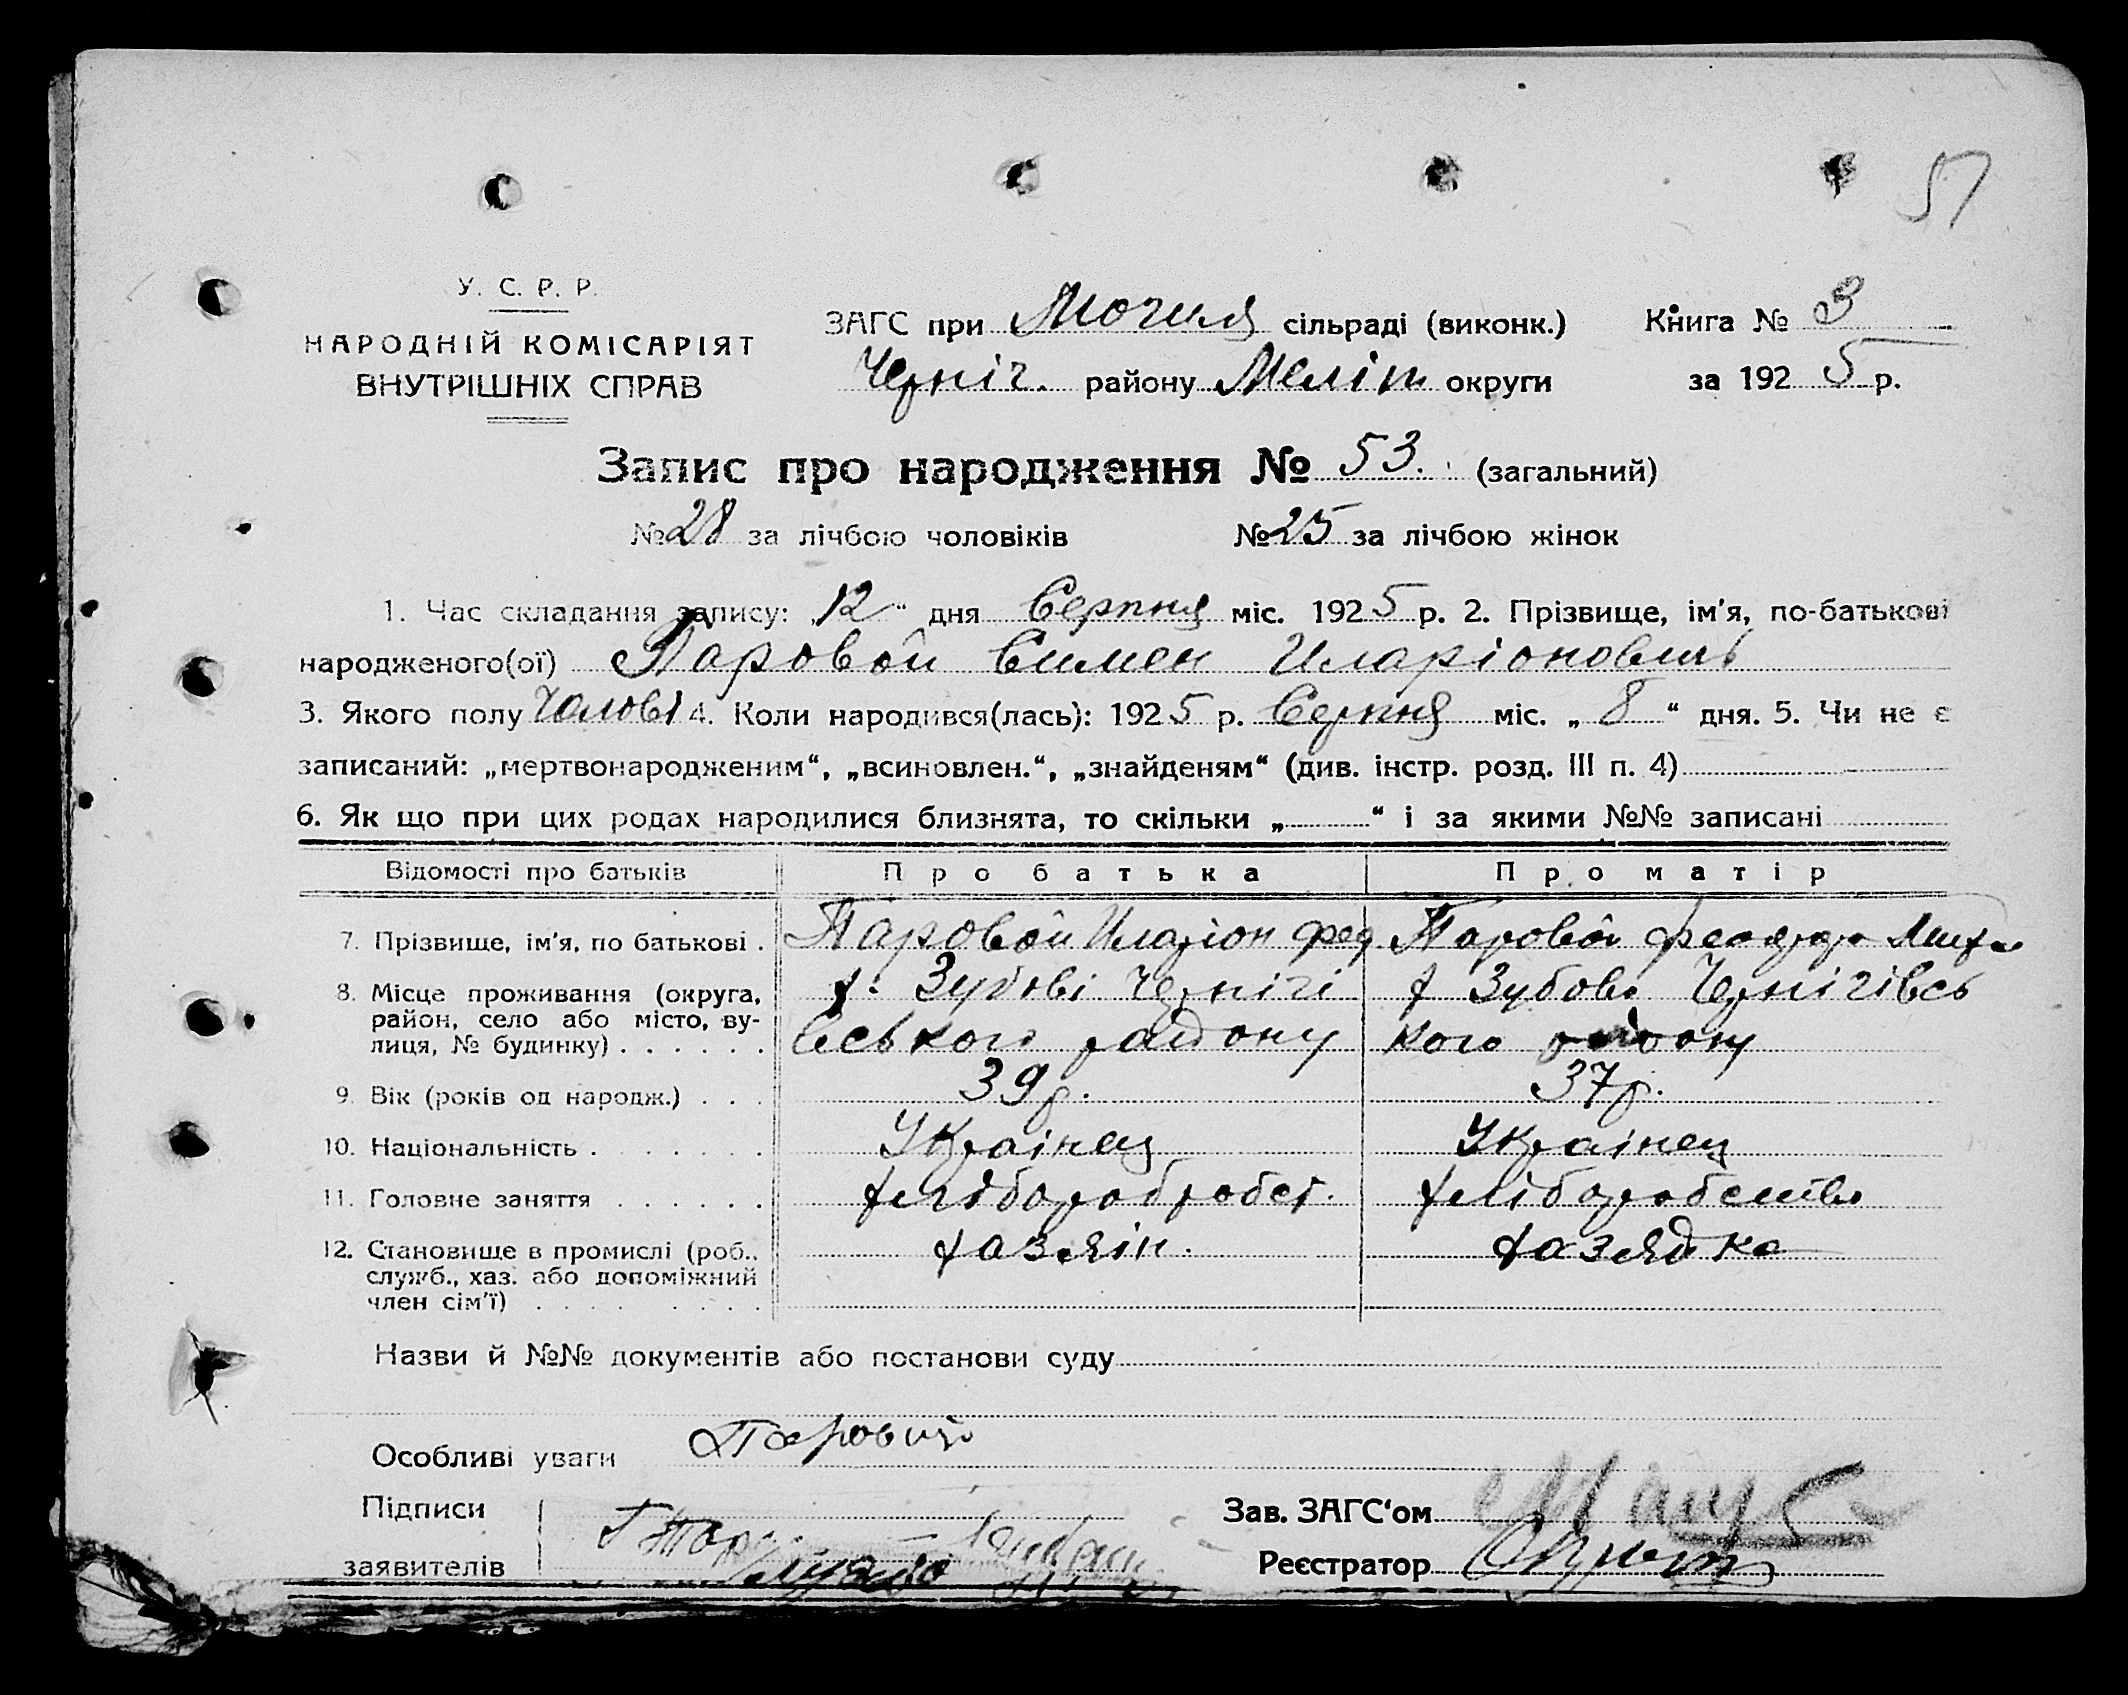 51
У. С. Р. Р.
НАРОДНІЙ КОМІСАРІЯТ
ВНУТРІШНІХ СПРАВ
ЗАГС при Могиля сільраді (виконк.) Книга № 3
Черніг. району Меліт округи за 1925 р.
Запис про народження № 53. (загальний)
№ 28 за лічбою чоловіків № 25 за лічбою жінок
1. Час складання запису: „12“ дня Серпня міс. 1925 р. 2. Прізвище, ім'я, по-батькові
народженого(ої) Паровой Симен Иларіонович
3. Якого полу Чолові 4. Коли народився(лась): 1925 р. Серпня міс. „8“ дня. 5. Чи не є
записаний: „мертвонародженим“, „всиновлен.“, „знайденям“ (див. інстр. розд. III п. 4)
6. Як що при цих родах народилися близнята, то скільки „ “ і за якими №№ записані
Відомості про батьків Про батька Про матір
7. Прізвище, ім'я, по батькові . Паровой Иларіон Фед Паровой
8. Місце проживання (округа, район, село або місто, вулиця, № будинку) х. Зубові Чернігі х Зубові Чернігівсь
вського району кого району
9. Вік (років од народж.) . . . 39 р. 37 р.
10. Національність . Украінец Украінец
11. Головне заняття хліборобство
12. Становище в промислі (роб., служб., хаз. або допоміжний член сім'ї) хазяін. хазяйка
Назви й №№ документів або постанови суду
Особливі уваги
Підписи
заявителів
Зав. ЗАГС‘ом
Реєстратор